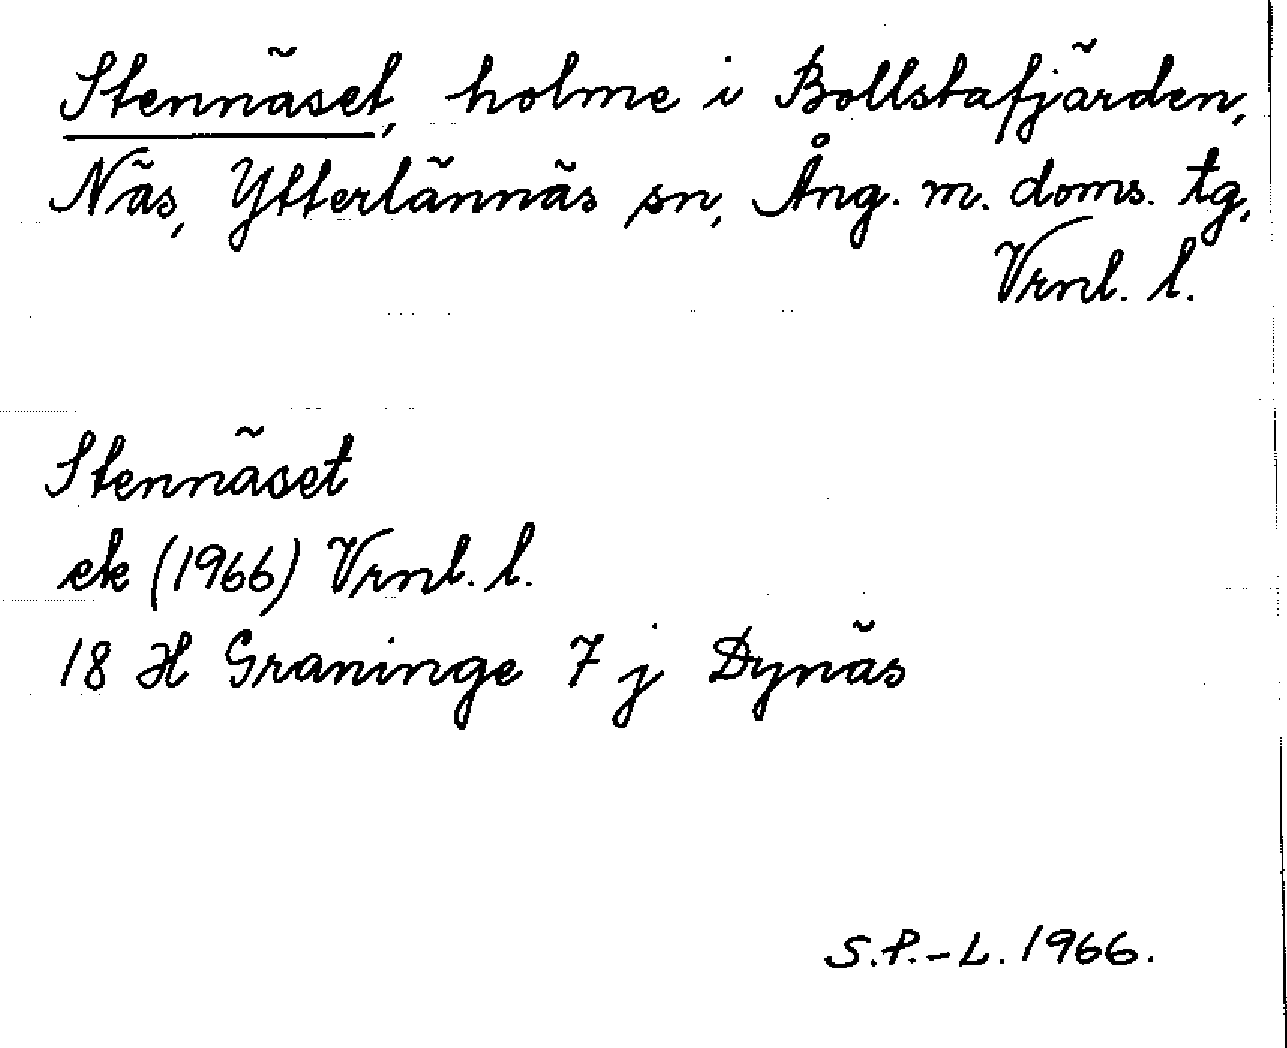 Stennäset, holme i Bollstafjärden,
Näs, Ytterlännäs sn, Ång. m. doms. tg,
Vrnl. l.
Stennäset
ek (1966) Vrnl. l.
18 H Graninge 7 j Dynäs
S.P.-L. 1966.